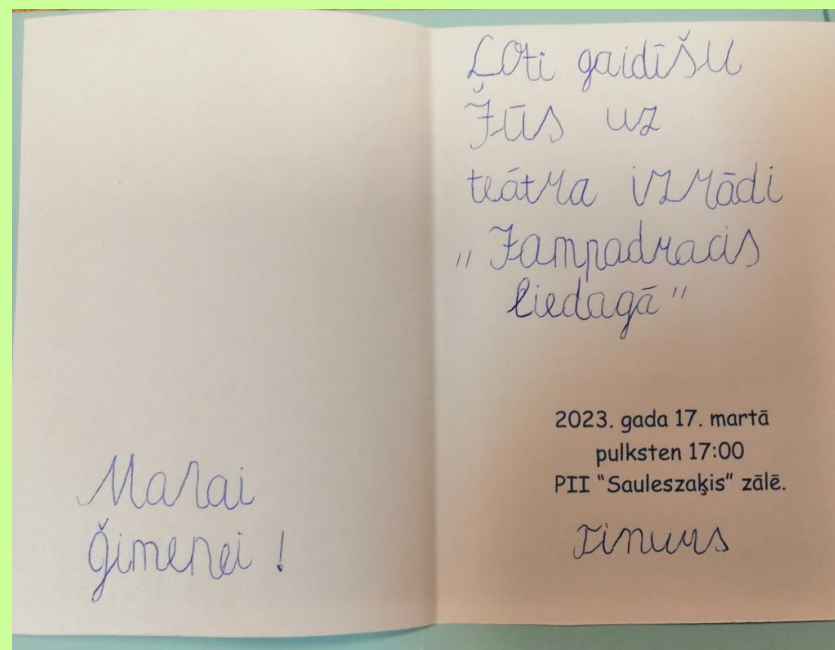 Manai
Ģimenei!
Ļoti gaidīšu
Jūs uz
teātra izrādi
"Jampadracis
liedagā"
2023. gada 17. martā
pulksten 17:00
PII "Sauleszaķis" zālē.